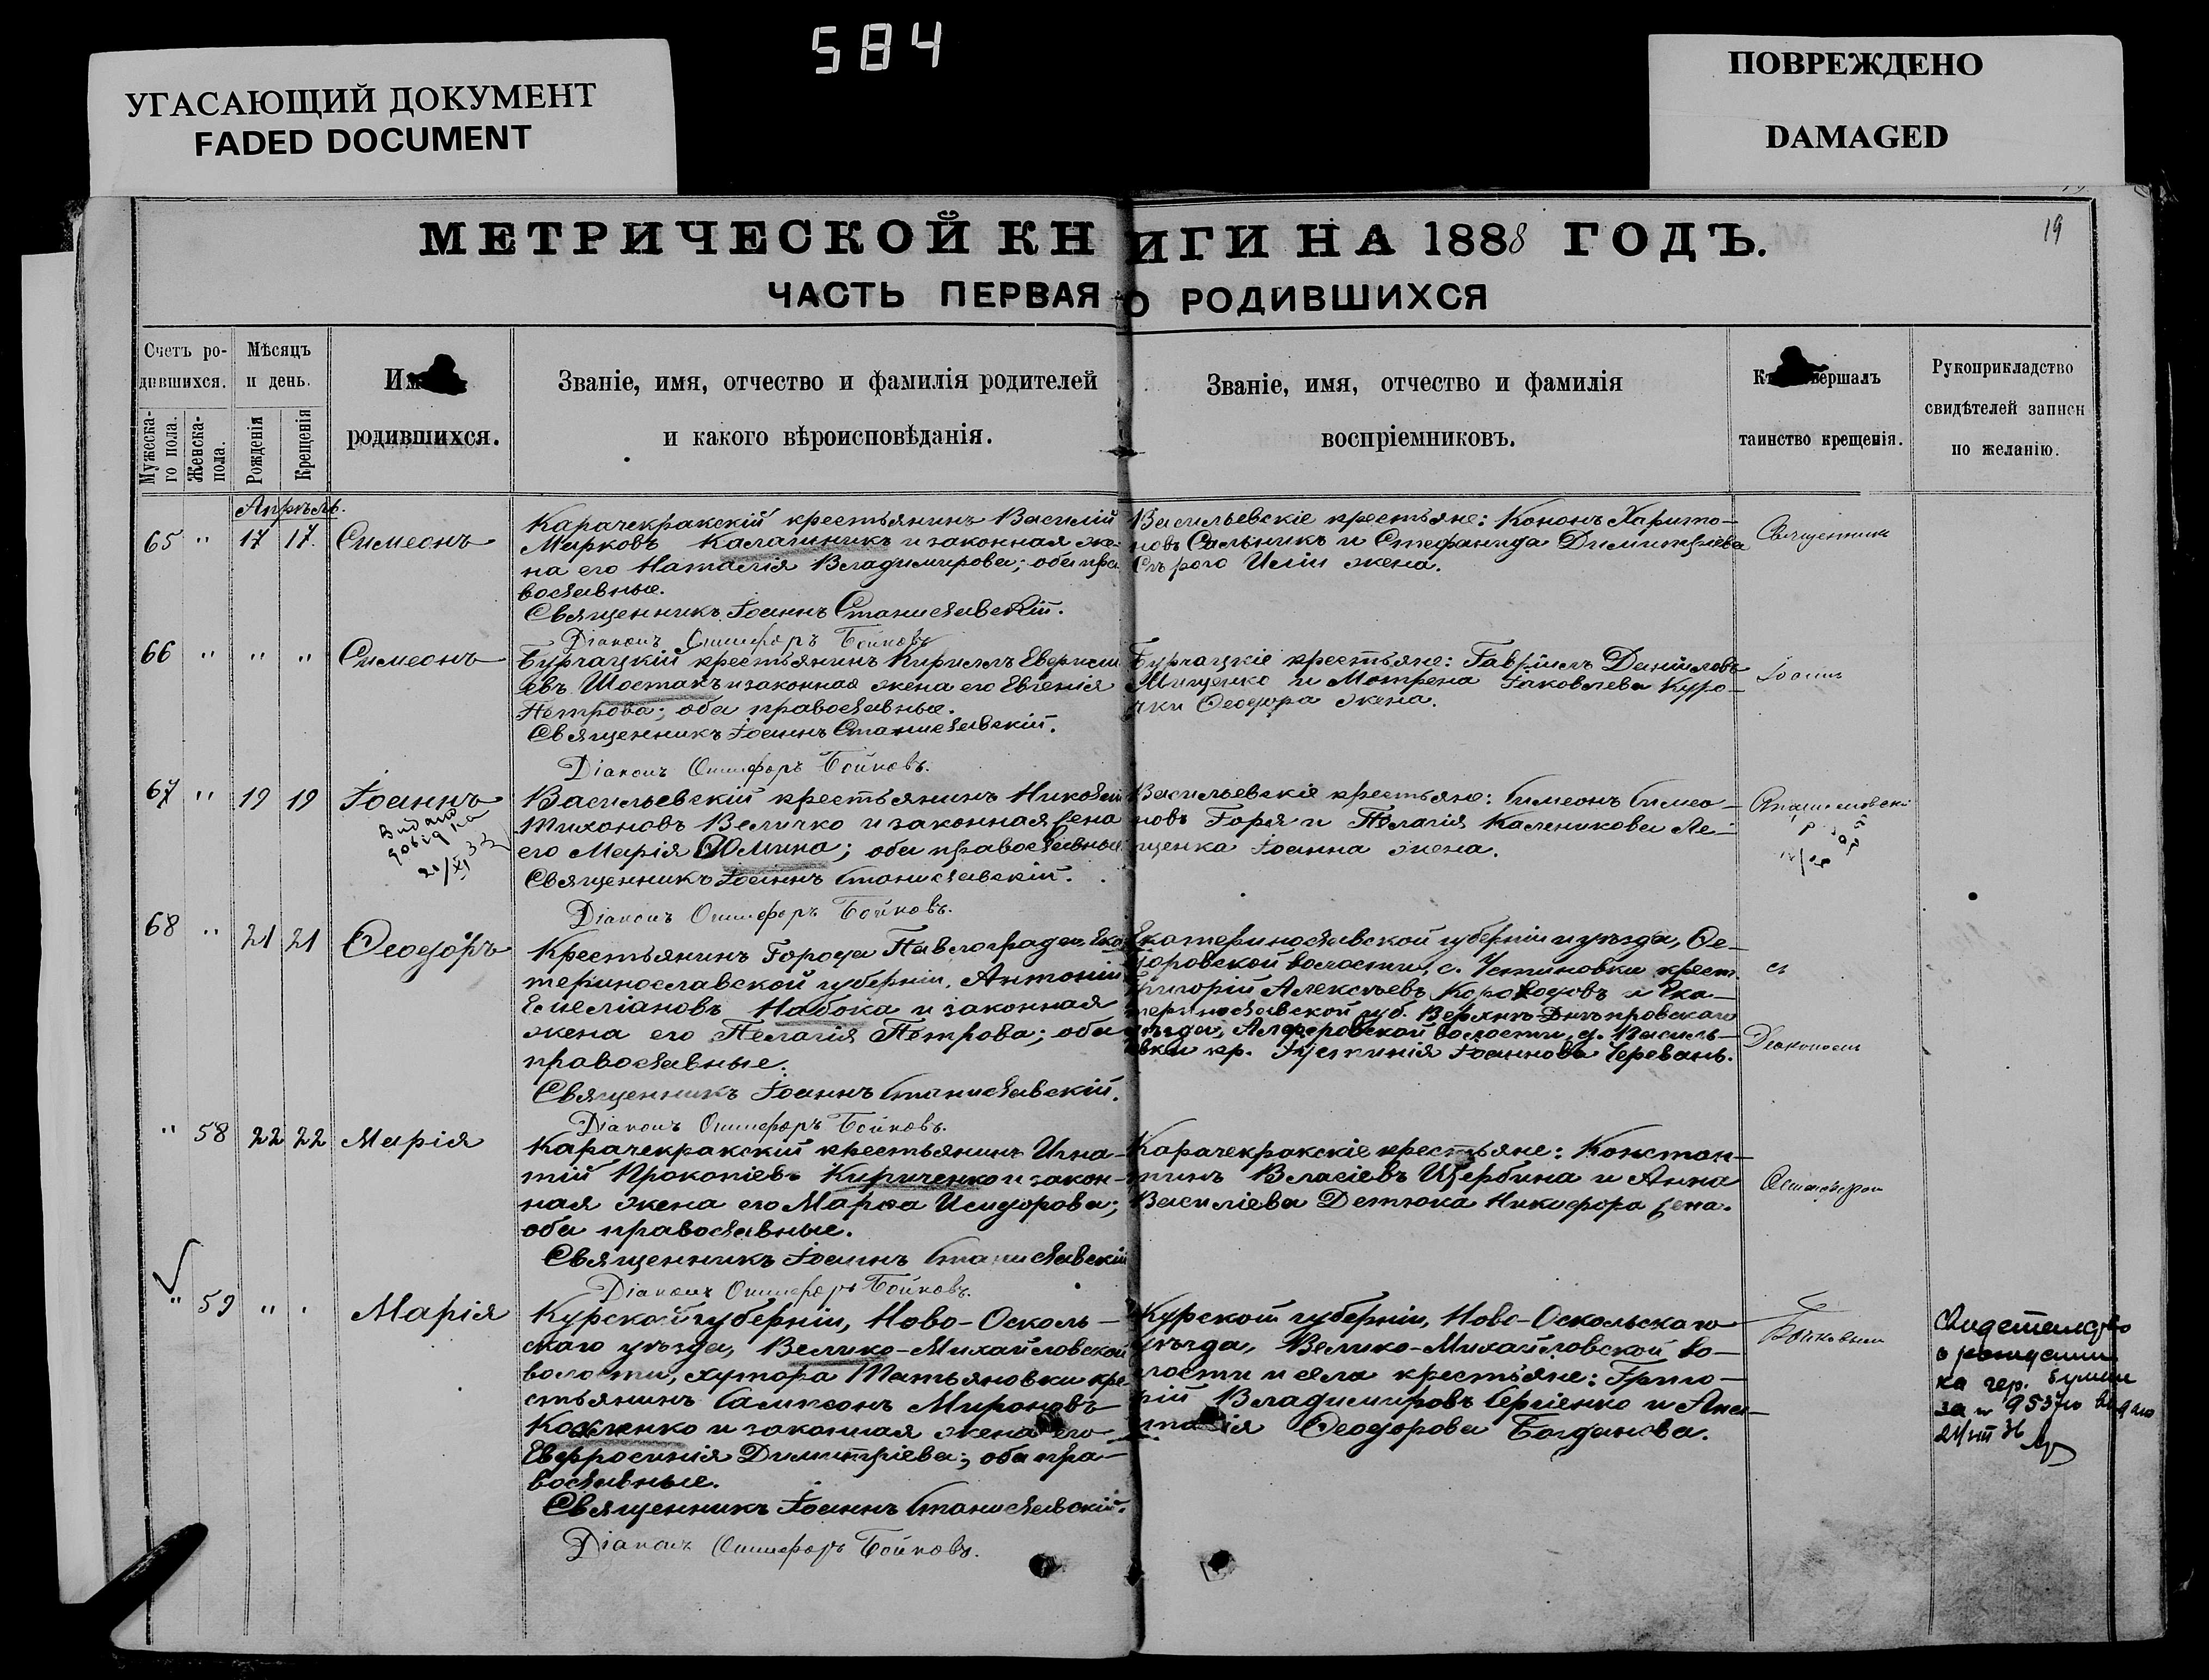 584
УГАСАЮЩИЙ ДОКУМЕНТ
FADED DOCUMENT
ПОВРЕЖДЕНО
DAMAGED
19
МЕТРИЧЕСКОЙ КНИГИ НА 1888 ГОДЪ.
ЧАСТЬ ПЕРВАЯ О РОДИВШИХСЯ
Счетъ ро-
дившихся.
Мужеска-
го пола.
Женска-
пола.
Мѣсяцъ
и день.
Рожденія
Крещенія
родившихся.
Званіе, имя, отчество и фамилія родителей
и какого вѣроисповѣданія.
Званіе, имя, отчество и фамилія
воспріемниковъ.
таинство крещенія.
Рукоприкладство
свидѣтелей записи
по желанію.
Апрѣль.
65 " 17 17. Симеонъ
Карачекракскій крестьянинъ Василій
Марковъ Калашникъ и законная же-
на его Наталія Владимирова; оба пра
вославные.
Священникъ Іоаннъ Станиславскій.
Діаконъ Онисифоръ Бойковъ
Васильевскіе крестьяне: Кононъ Харито-
новъ Сальникъ и Стефанида Димитріева
Сѣрого Иліи жена.
Священникъ
66 " " " Симеонъ
Бурчацкій крестьянинъ Кириллъ
евъ Шостакъ и законная жена его Евгенія
Петрова; оба православные.
Священникъ Іоаннъ Станиславскій.
Діаконъ Онисифоръ Бойковъ.
Бурчацкіе крестьяне: Гавріилъ Даніиловъ
Мищенко и Мотрена Іаковлева Куро-
чки Ѳеодора жена.
Іоаннъ
67 " 19 19 Іоаннъ
20/XI 33
Васильевскій крестьянинъ Николай
Тихоновъ Величко и законная жена
его Марія Ѳомина; оба православные
Священникъ Іоаннъ Станиславскій.
Діаконъ Онисифоръ Бойковъ.
Васильевскіе крестьяне: Симеонъ Симео-
новъ Горя и Пелагія Каленикова Ле-
щенка Іоанна жена.
68 " 21 21 Ѳеодоръ
Крестьянинъ Города Павлограда, Ека
теринославской губерніи, Антоній
Емеліановъ Набока и законная
жена его Пелагія Петрова; оба
православные.
Священникъ Іоаннъ Станиславскій.
Діаконъ Онисифоръ Бойковъ.
Екатеринославской губерніи и уѣзда, Ѳе-
доровской волости, с. Устиновки крест.
Григорій Алексѣевъ Короводовъ и Ека-
теринославской губ. Верхнѣ-Днѣпровскаго
уѣзда, Алферовской волости, д. Василь-
евки кр. Іустинія Іоаннова Черевань.
съ
Діакономъ
" 58 22 22 Марія
Карачекракскій крестьянинъ Игна-
тій Прокопіевъ Кириченко и закон-
ная жена его Марѳа Исидорова;
оба православные.
Священникъ Іоаннъ Станиславскій
Діаконъ Онисифоръ Бойковъ.
Карачекракскіе крестьяне: Констан-
тинъ Власіевъ Щербина и Анна
Василіева Детюка Никифора жена.
" 59 " " Марія
Курской губерніи, Ново-Осколь-
скаго уѣзда, Велико-Михайловской
волости, хутора Татьяновки кре
стьянинъ Сампсонъ Мироновъ
и законная жена его
Евфросинія Димитріева; оба пра-
вославные.
Священникъ Іоаннъ Станиславскій.
Діаконъ Онисифоръ Бойковъ.
Курской губерніи, Ново-Оскольскаго
уѣзда, Велико-Михайловской во-
лости и села крестьяне: Григо-
рій Владимировъ Сергіенко и Ана-
стасія Ѳеодорова Богданова.
Бойковымъ
о рождении